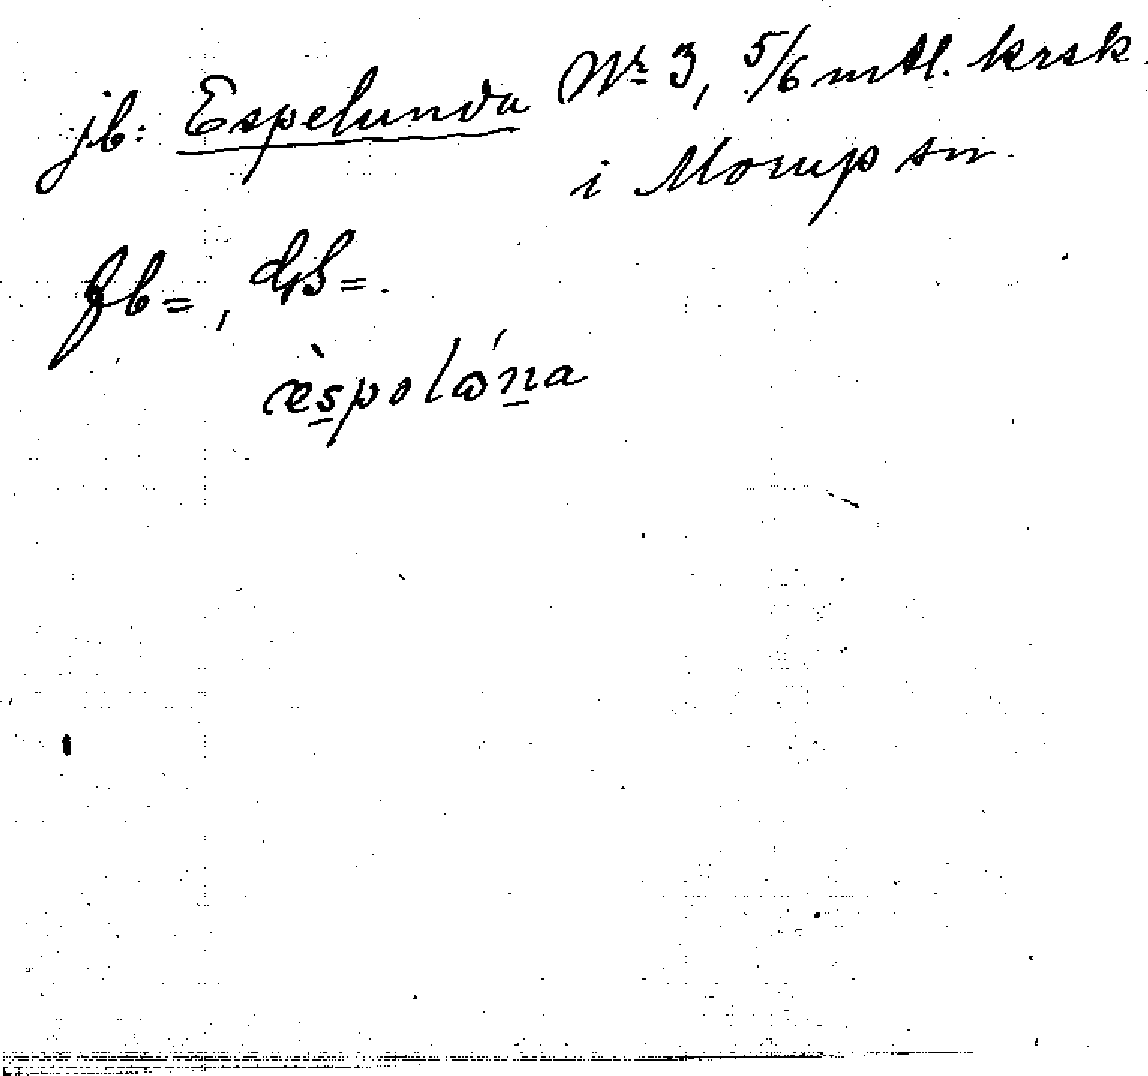 jb: Espelunda Nr 3, 5/6 mtl. krsk.
i Morup sn.
fb =, GS =.
æ̀spolǿna